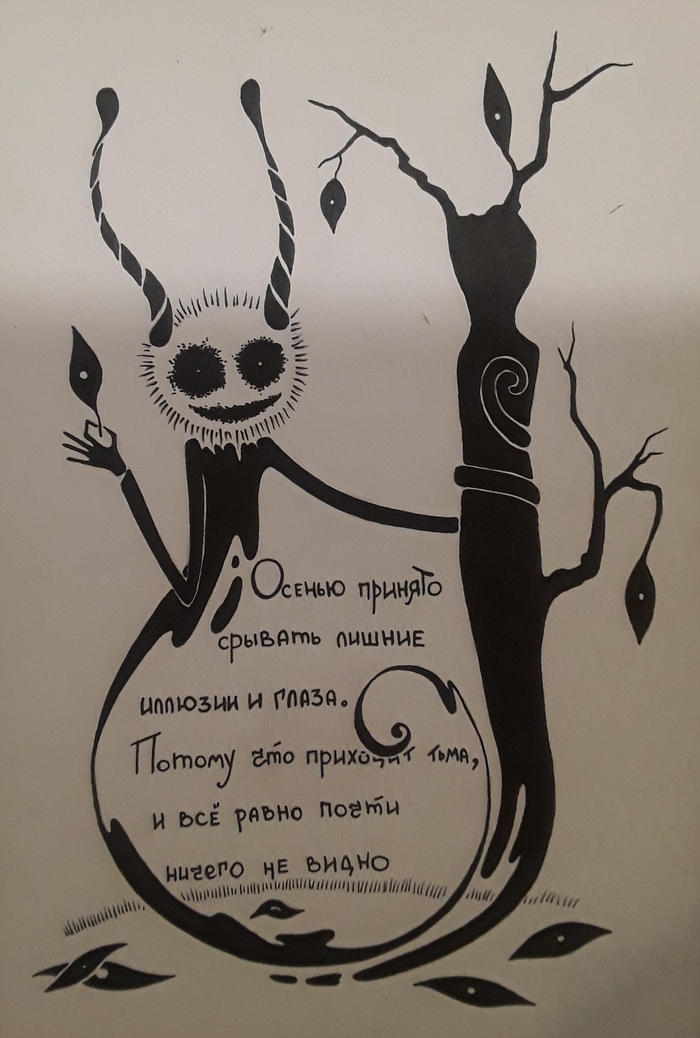 Осенью принято
срывать лишние
иллюзии и глаза.
Потому что приходит тьма,
и всё равно почти
ничего не видно